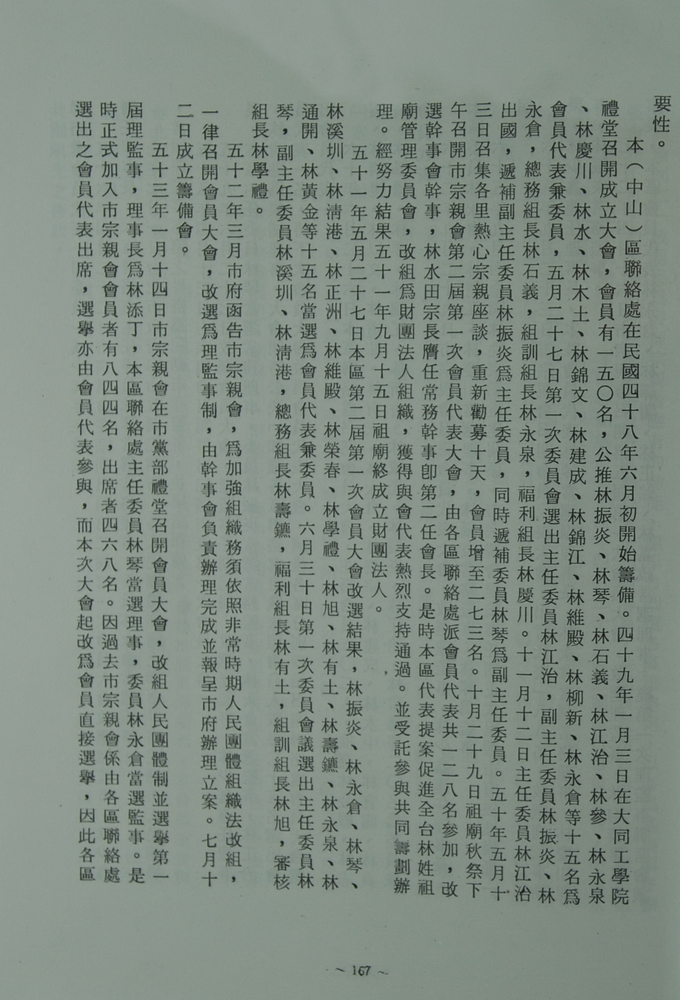 要性。
本（中山）區聯絡處在民國四十八年六月初開始籌備。四十九年一月三日在大同工學院
禮堂召開成立大會，會員有一五〇名，公推林振炎、林琴、林石義、林江治、林參、林永泉
、林慶川、林水、林木土、林錦文、林建成、林錦江、林維殿、林柳新、林永倉等十五名爲
會員代表兼委員，五月二十七日第一次委員會選出主任委員林江治，副主任委員林振炎、林
永倉，總務組長林石義，組訓組長林永泉，福利組長林慶川。十一月十二日主任委員林江治
出國，遞補副主任委員林振炎爲主任委員，同時遞補委員林琴爲副主任委員。五十年五月十
三日召集各里熱心宗親座談，重新勸募十天，會員增至二七三名。十月二十九日祖廟秋祭下
午召開市宗親會第二屆第一次會員代表大會，由各區聯絡處派會員代表共一二八名參加，改
選幹事會幹事，林水田宗長膺任常務幹事卽第二任會長。是時本區代表提案促進全台林姓祖
廟管理委員會，改組爲財團法人組織，獲得與會代表熱烈支持通過。並受託參與共同籌劃辦
理。經努力結果五十一年九月十五日祖廟終成立財團法人。
五十一年五月二十七日本區第二屆第一次會員大會改選結果，林振炎、林永倉、林琴、
林溪圳、林清港、林正洲、林維殿、林榮春、林學禮、林旭、林有土、林壽鑣、林永泉、林
通開、林黃金等十五名當選爲會員代表兼委員。六月三十日第一次委員會議選出主任委員林
琴，副主任委員林溪圳、林清港，總務組長林壽鑣，福利組長林有土，組訓組長林旭，審核
組長林學禮。
五十二年三月市府函告市宗親會，爲加強組織務須依照非常時期人民團體組織法改組，
一律召開會員大會，改選爲理監事制，由幹事會負責辦理完成並報呈市府辦理立案。七月十
二日成立籌備會。
五十三年一月十四日市宗親會在市黨部禮堂召開會員大會，改組人民團體制並選舉第一
屆理監事，理事長爲林添丁，本區聯絡處主任委員林琴當選理事，委員林永倉當選監事。是
時正式加入市宗親會會員者有八四四名，出席者四六八名。因過去市宗親會係由各區聯絡處
選出之會員代表出席，選舉亦由會員代表參與，而本次大會起改爲會員直接選舉，因此各區
～167～